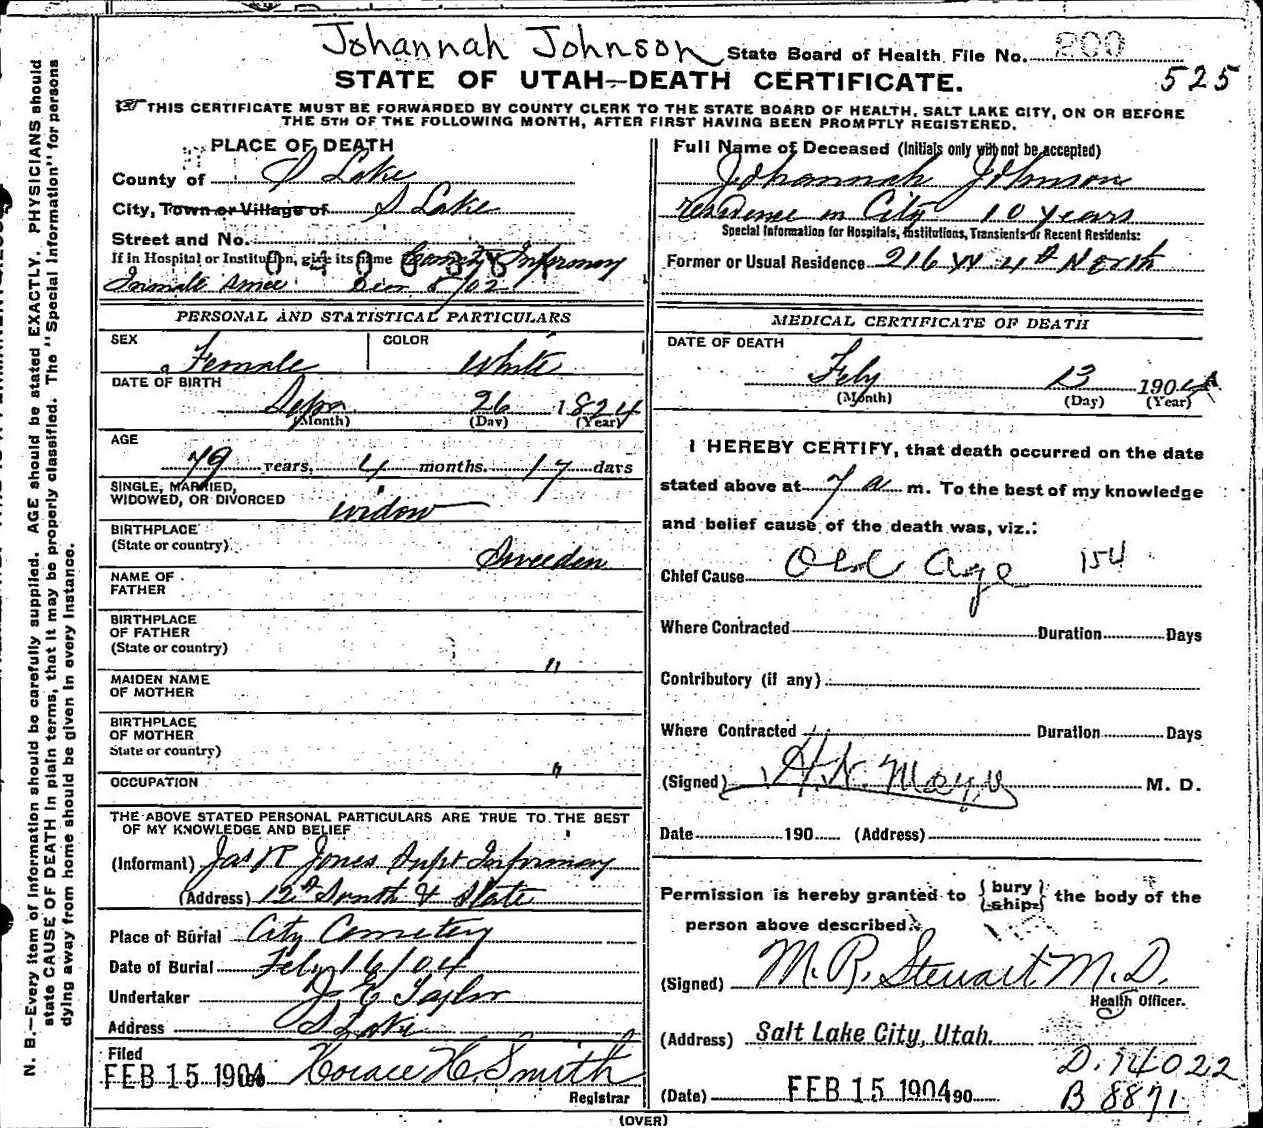 Johannah Johnson State Board of Health File No. 200
525
STATE OF UTAH—DEATH CERTIFICATE.
THIS CERTIFICATE MUST BE FORWARDED BY COUNTY CLERK TO THE STATE BOARD OF HEALTH, SALT LAKE CITY, ON OR BEFORE
THE 5TH OF THE FOLLOWING MONTH, AFTER FIRST HAVING BEEN PROMPTLY REGISTERED.
PLACE OF DEATH
County of S Lake
City, Town or Village of S Lake
Street and No.
If in Hospital or Institution, give its name County Infirmary
Inmate since
PERSONAL AND STATISTICAL PARTICULARS
SEX Female COLOR White
DATE OF BIRTH
Sepr 26 1824
(Month) (Day) (Year)
AGE
79 years, 4 months. 17 days
SINGLE, MARRIED,
WIDOWED, OR DIVORCED widow
BIRTHPLACE
(State or country) Sweeden
NAME OF
FATHER
BIRTHPLACE
OF FATHER
(State or country) "
MAIDEN NAME
OF MOTHER
BIRTHPLACE
OF MOTHER
State or country) "
OCCUPATION
THE ABOVE STATED PERSONAL PARTICULARS ARE TRUE TO THE BEST
OF MY KNOWLEDGE AND BELIEF
(Informant) Jas R Jones Supt Infirmary
(Address) 12th South & State
Place of Burial City Cemetery
Date of Burial Feby 16/04
Undertaker Taylor
Address S Lake
Filed
FEB 15 1904 Horace H. Smith
Registrar
Full Name of Deceased (Initials only will not be accepted)
Johannah Johnson
residence in City 10 years
Special Information for Hospitals, Institutions, Transients or Recent Residents:
Former or Usual Residence 216 W 4th North
MEDICAL CERTIFICATE OF DEATH
DATE OF DEATH
Feby 13 1904
(Month) (Day) (Year)
I HEREBY CERTIFY, that death occurred on the date
stated above at 7 a m. To the best of my knowledge
and belief cause of the death was, viz.:
Chief Cause Old Age 154
Where Contracted Duration Days
Contributory (if any)
Where Contracted Duration Days
(Signed) H. N. Mayo M. D.
Date 190 (Address)
Permission is hereby granted to { bury / ship } the body of the
person above described.
(Signed) M. R. Stewart M.D.
Health Officer.
(Address) Salt Lake City, Utah.
(Date) FEB 15 1904 90
D. 14022
B 8871
(OVER)
N. B.—Every item of information should be carefully supplied. AGE should be stated EXACTLY. PHYSICIANS should
state CAUSE OF DEATH in plain terms, that it may be properly classified. The "Special Information" for persons
dying away from home should be given in every instance.